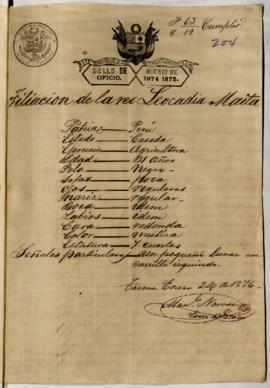 F 63
C. 19 Cumplió
204
SELLO DE OFICIO.
BIENIO DE 1874 1875.
Filiacion de la reo Leocadia Maita
Patria Perú
Estado Casada
Ejercicio Agricultora
Edad 31 años
Pelo Negro
Sejas Poca
Ojos Regulares
Nariz regular
Boca idem
Labios idem
Cara redonda
Color mestisa
Estatura 7 cuartas
Señales particulares Un pequeño lunar en
carrillo izquierdo.
Tarma Enero 24 de 1876